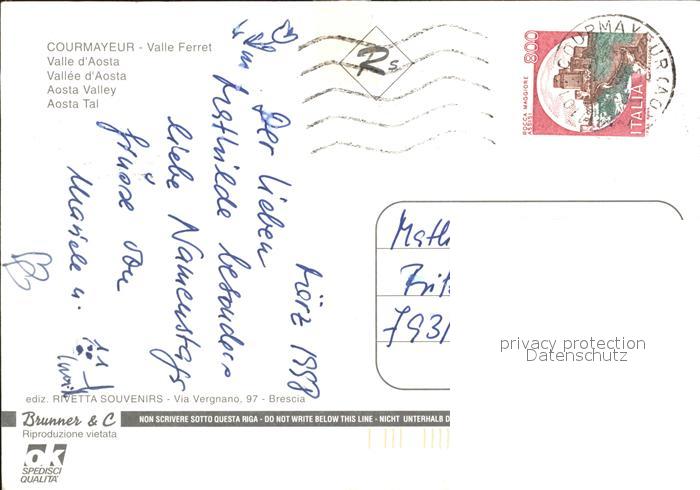 COURMAYEUR - Valle Ferret
Valle d'Aosta
Vallée d'Aosta
Aosta Valley
Aosta Tal
R s
800
ROCCA MAGGIORE
ASSISI
ITALIA
COURMAYEUR (AO)
März 1998
Der lieben
Mathilde besonders
liebe Namenstags
grüsse von
Mariele u.
Math
Fri
7931
privacy protection
Datenschutz
ediz. RIVETTA SOUVENIRS - Via Vergnano, 97 - Brescia
Brunner & C
NON SCRIVERE SOTTO QUESTA RIGA - DO NOT WRITE BELOW THIS LINE - NICHT UNTERHALB D
Riproduzione vietata
ok
SPEDISCI
QUALITA'